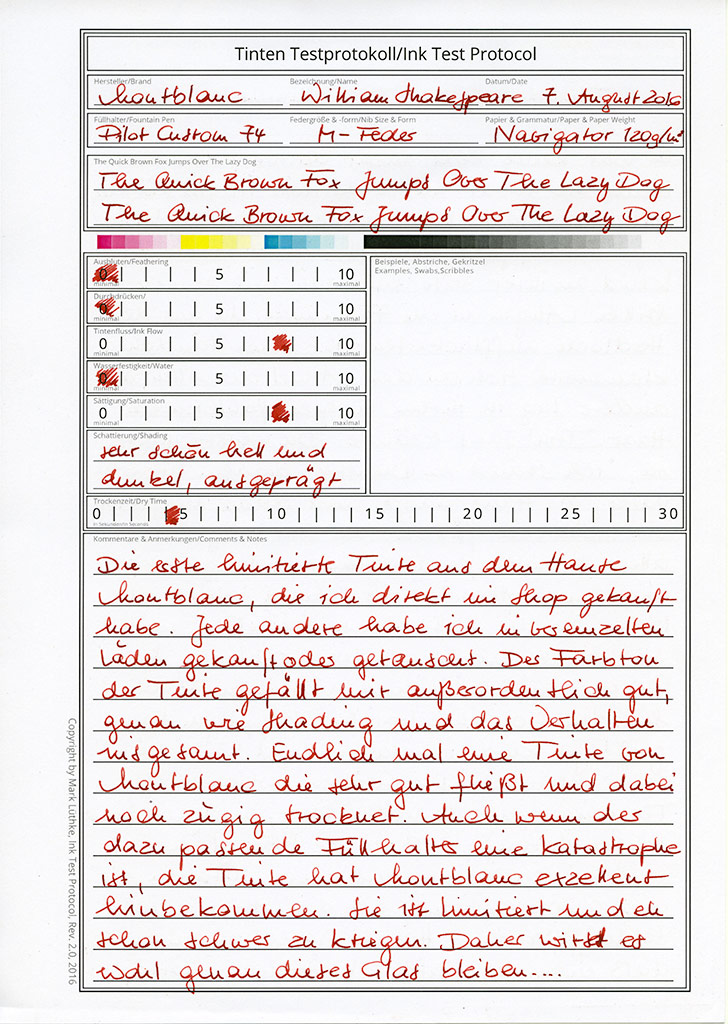 Tinten Testprotokoll/Ink Test Protocol
Hersteller/Brand Bezeichnung/Name Datum/Date
Montblanc William Shakespeare 7. August 2016
Füllhalter/Fountain Pen Federgröße & -form/Nib Size & Form Papier & Grammatur/Paper & Paper Weight
Pilot Custom 74 M-Feder Navigator 120g/m²
The Quick Brown Fox Jumps Over The Lazy Dog
The Quick Brown Fox Jumps Over The Lazy Dog
The Quick Brown Fox Jumps Over The Lazy Dog
Ausbluten/Feathering
0 5 10
minimal maximal
Durchdrücken/
0 5 10
minimal maximal
Tintenfluss/Ink Flow
0 5 10
minimal maximal
Wasserfestigkeit/Water
0 5 10
minimal maximal
Sättigung/Saturation
0 5 10
minimal maximal
Schattierung/Shading
sehr schön hell und
dunkel, ausgeprägt
Beispiele, Abstriche, Gekritzel
Examples, Swabs,Scribbles
Trockenzeit/Dry Time
0 5 10 15 20 25 30
in Sekunden/in Seconds
Kommentare & Anmerkungen/Comments & Notes
Die erste limitierte Tinte aus dem Hause
Montblanc, die ich direkt im Shop gekauft
habe. Jede andere habe ich in vereinzelten
Läden gekauft oder getauscht. Der Farbton
der Tinte gefällt mir außerordentlich gut,
genau wie Shading und das Verhalten
insgesamt. Endlich mal eine Tinte von
Montblanc die sehr gut fließt und dabei
noch zügig trocknet. Auch wenn der
dazu passende Füllhalter eine Katastrophe
ist, die Tinte hat Montblanc exzellent
hinbekommen. Sie ist limitiert und eh
schon schwer zu kriegen. Daher wird es
wohl genau dieses Glas bleiben....
Copyright by Mark Lüthke, Ink Test Protocol, Rev. 2.0, 2016